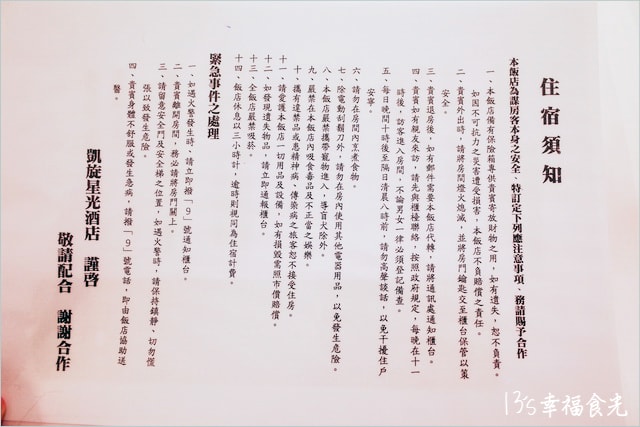 住宿須知
本飯店為謀房客本身之安全，特訂定下列應注意事項，務請賜予合作
一、本飯店備有保險箱專供貴賓寄放財物之用，如有遺失，恕不負責。
如因不可抗力之災害遭受損害，本飯店不負賠償之責任。
二、貴賓外出時，請將房間燈火熄滅，並將房門鑰匙交至櫃台保管以策
安全。
三、貴賓退房後，如有郵件需要本飯店代轉，請將通訊處通知櫃台。
四、貴賓如有親友來訪，請先與櫃檯聯絡，按照政府規定，每晚在十一
時後，訪客進入房間，不論男女一律必須登記備查。
五、每日晚間十時後至隔日清晨八時前，請勿高聲談話，以免干擾住戶
安寧。
六、請勿在房間內烹煮食物。
七、除電動刮鬍刀外，請勿在房內使用其他電器用品，以免發生危險。
八、本飯店嚴禁攜帶寵物進入，導盲犬除外。
九、嚴禁在本飯店內吸食毒品及不正當之娛樂。
十、攜有違禁品或患精神病、傳染病之旅客恕不接受住房。
十一、請愛護本飯店一切用品及設備，如有損毀需照市價賠償。
十二、如發現遺失物品，請立即通報櫃台。
十三、全飯店嚴禁吸菸。
十四、飯店休息以三小時計，逾時則視同為住宿計費。
緊急事件之處理
一、如遇火警發生時，請立即撥「9」號通知櫃台。
二、貴賓離開房間，務必請將房門關上。
三、請留意安全門及安全梯之位置，如遇火警時，請保持鎮靜，切勿慌
張以致發生危險。
四、貴賓身體不舒服或發生急病，請撥「9」號電話，即由飯店協助送
醫。
凱旋星光酒店 謹啓
敬請配合 謝謝合作
13's幸福食光